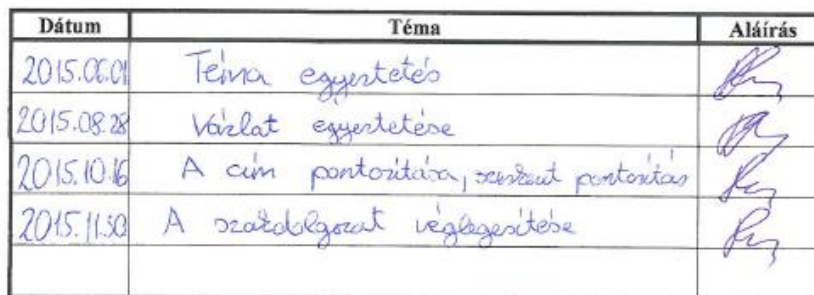 Dátum Téma Aláírás
2015.06.01 Téma egyeztetés
2015.08.28 Vázlat egyeztetése
2015.10.16 A cím pontosítása, pontosítás
2015.11.30 A szakdolgozat véglegesítése